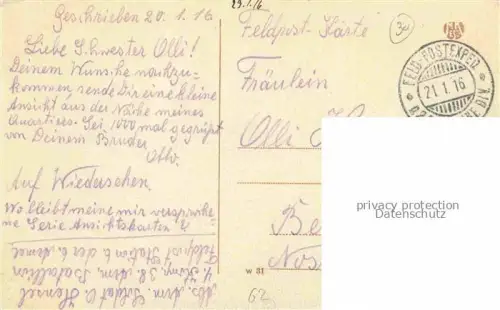 Geschrieben 20.1.16
Liebe Schwester Olli!
Deinem Wunsche nachzu-
kommen, sende Dir eine kleine
Ansicht aus der Nähe meines
Quartieres. Sei 1000 mal gegrüßt
von Deinem Bruder
Otto.
Auf Wiedersehen.
Wo bleibt meine mir versproche-
ne Serie Ansichtskarten
Abs. Arm. Soldat O. Hensel
4. Komp. 38. Arm. Batallion
Feldpost Station 6 der 6. Armee
23.1.16
Feldpost-Karte
30
Fräulein
Olli
Be
Nos
FELD-POSTEXPED
21.1.16
DIV.
W 31
62
privacy protection
Datenschutz